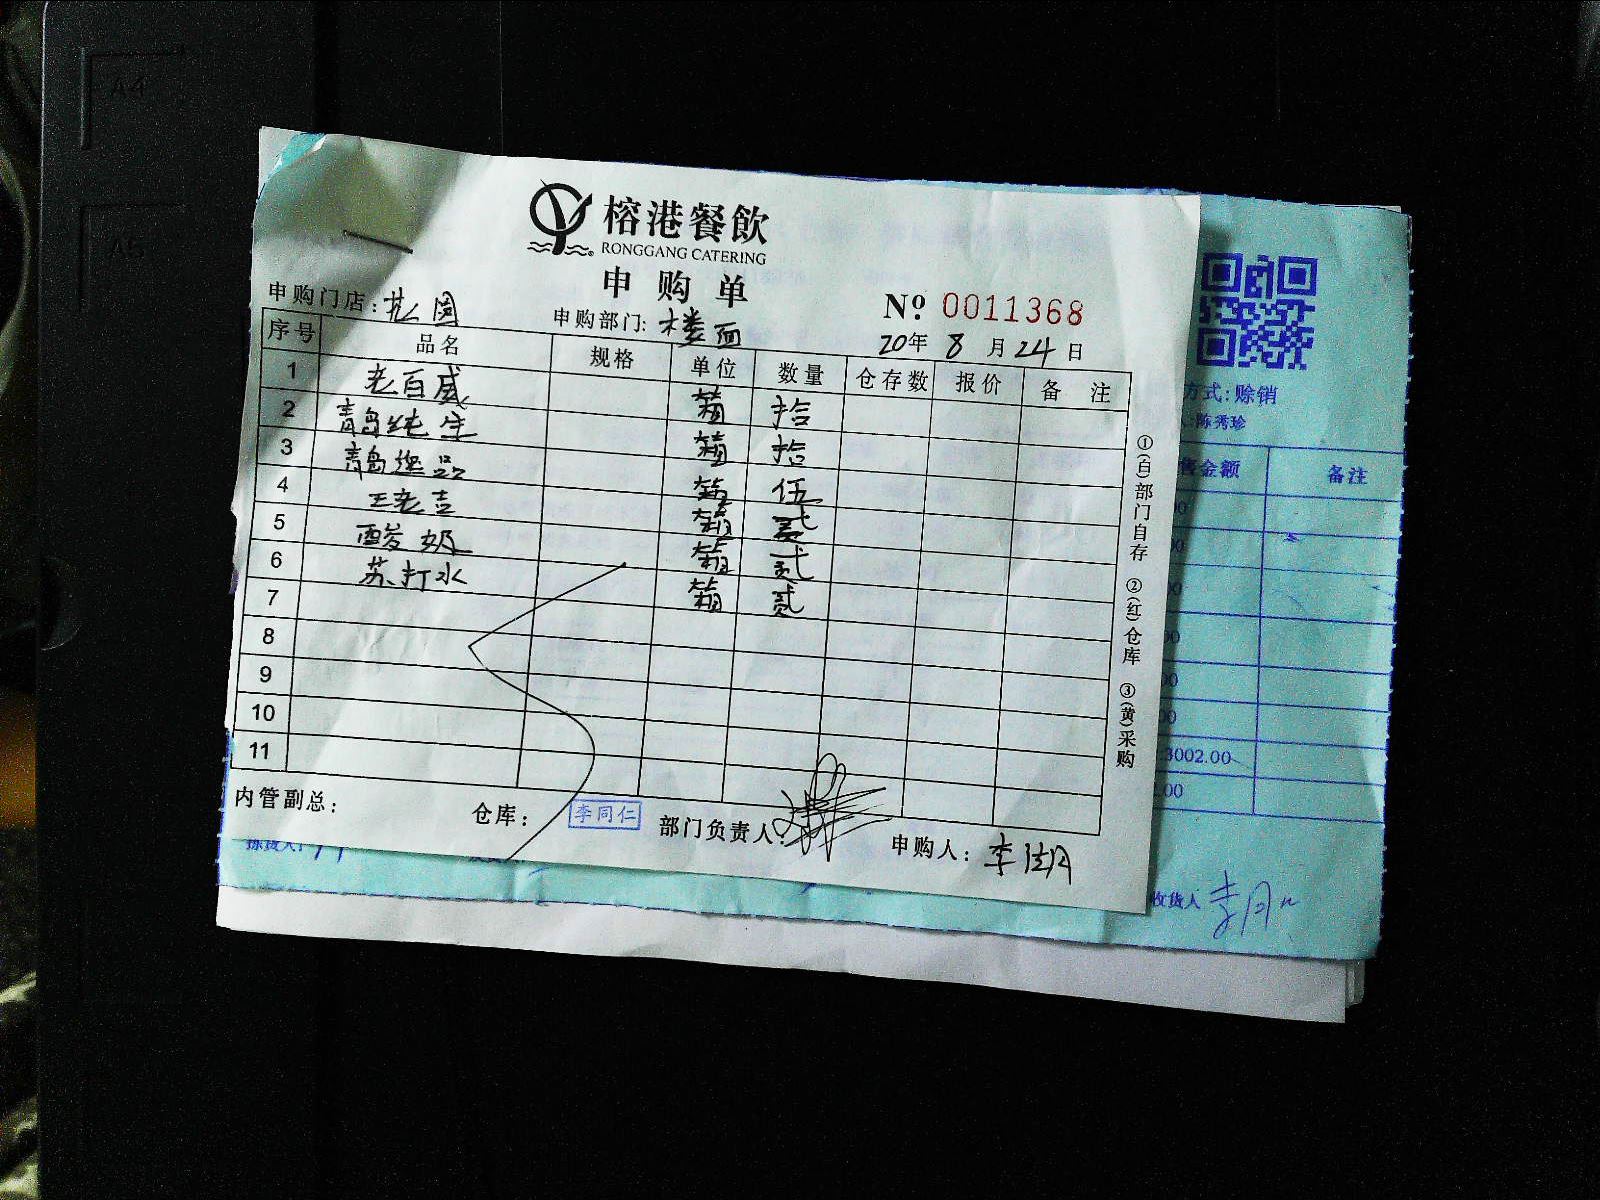 A4
A5
榕港餐飲
RONGGANG CATERING
申购单
Nº 0011368
申购门店:
申购部门: 楼面
20年 8月 24日
序号 品名 规格 单位 数量 仓存数 报价 备注
1 老百威 箱 拾
2 青岛纯生 箱 拾
3 青岛逸品 箱 伍
4 王老吉 箱 贰
5 酸奶 箱 贰
6 苏打水 箱 贰
7
8
9
10
11
内管副总: 仓库: 李同仁 部门负责人: 申购人: 李
①(白)部门自存 ②(红)仓库 ③(黄)采购
方式: 赊销
陈秀珍
售金额 备注
00
00
00
00
00
00
3002.00
.00
拣货人:
收货人 李同仁